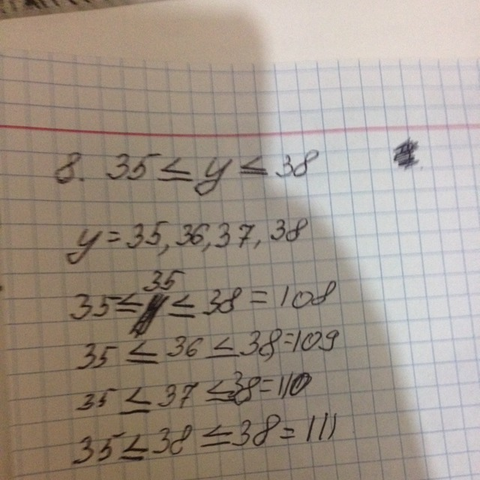 8. 35 ≤ y ≤ 38
y = 35, 36, 37, 38
35 ≤ 35 ≤ 38 = 108
35 ≤ 36 ≤ 38 = 109
35 ≤ 37 ≤ 38 = 110
35 ≤ 38 ≤ 38 = 111